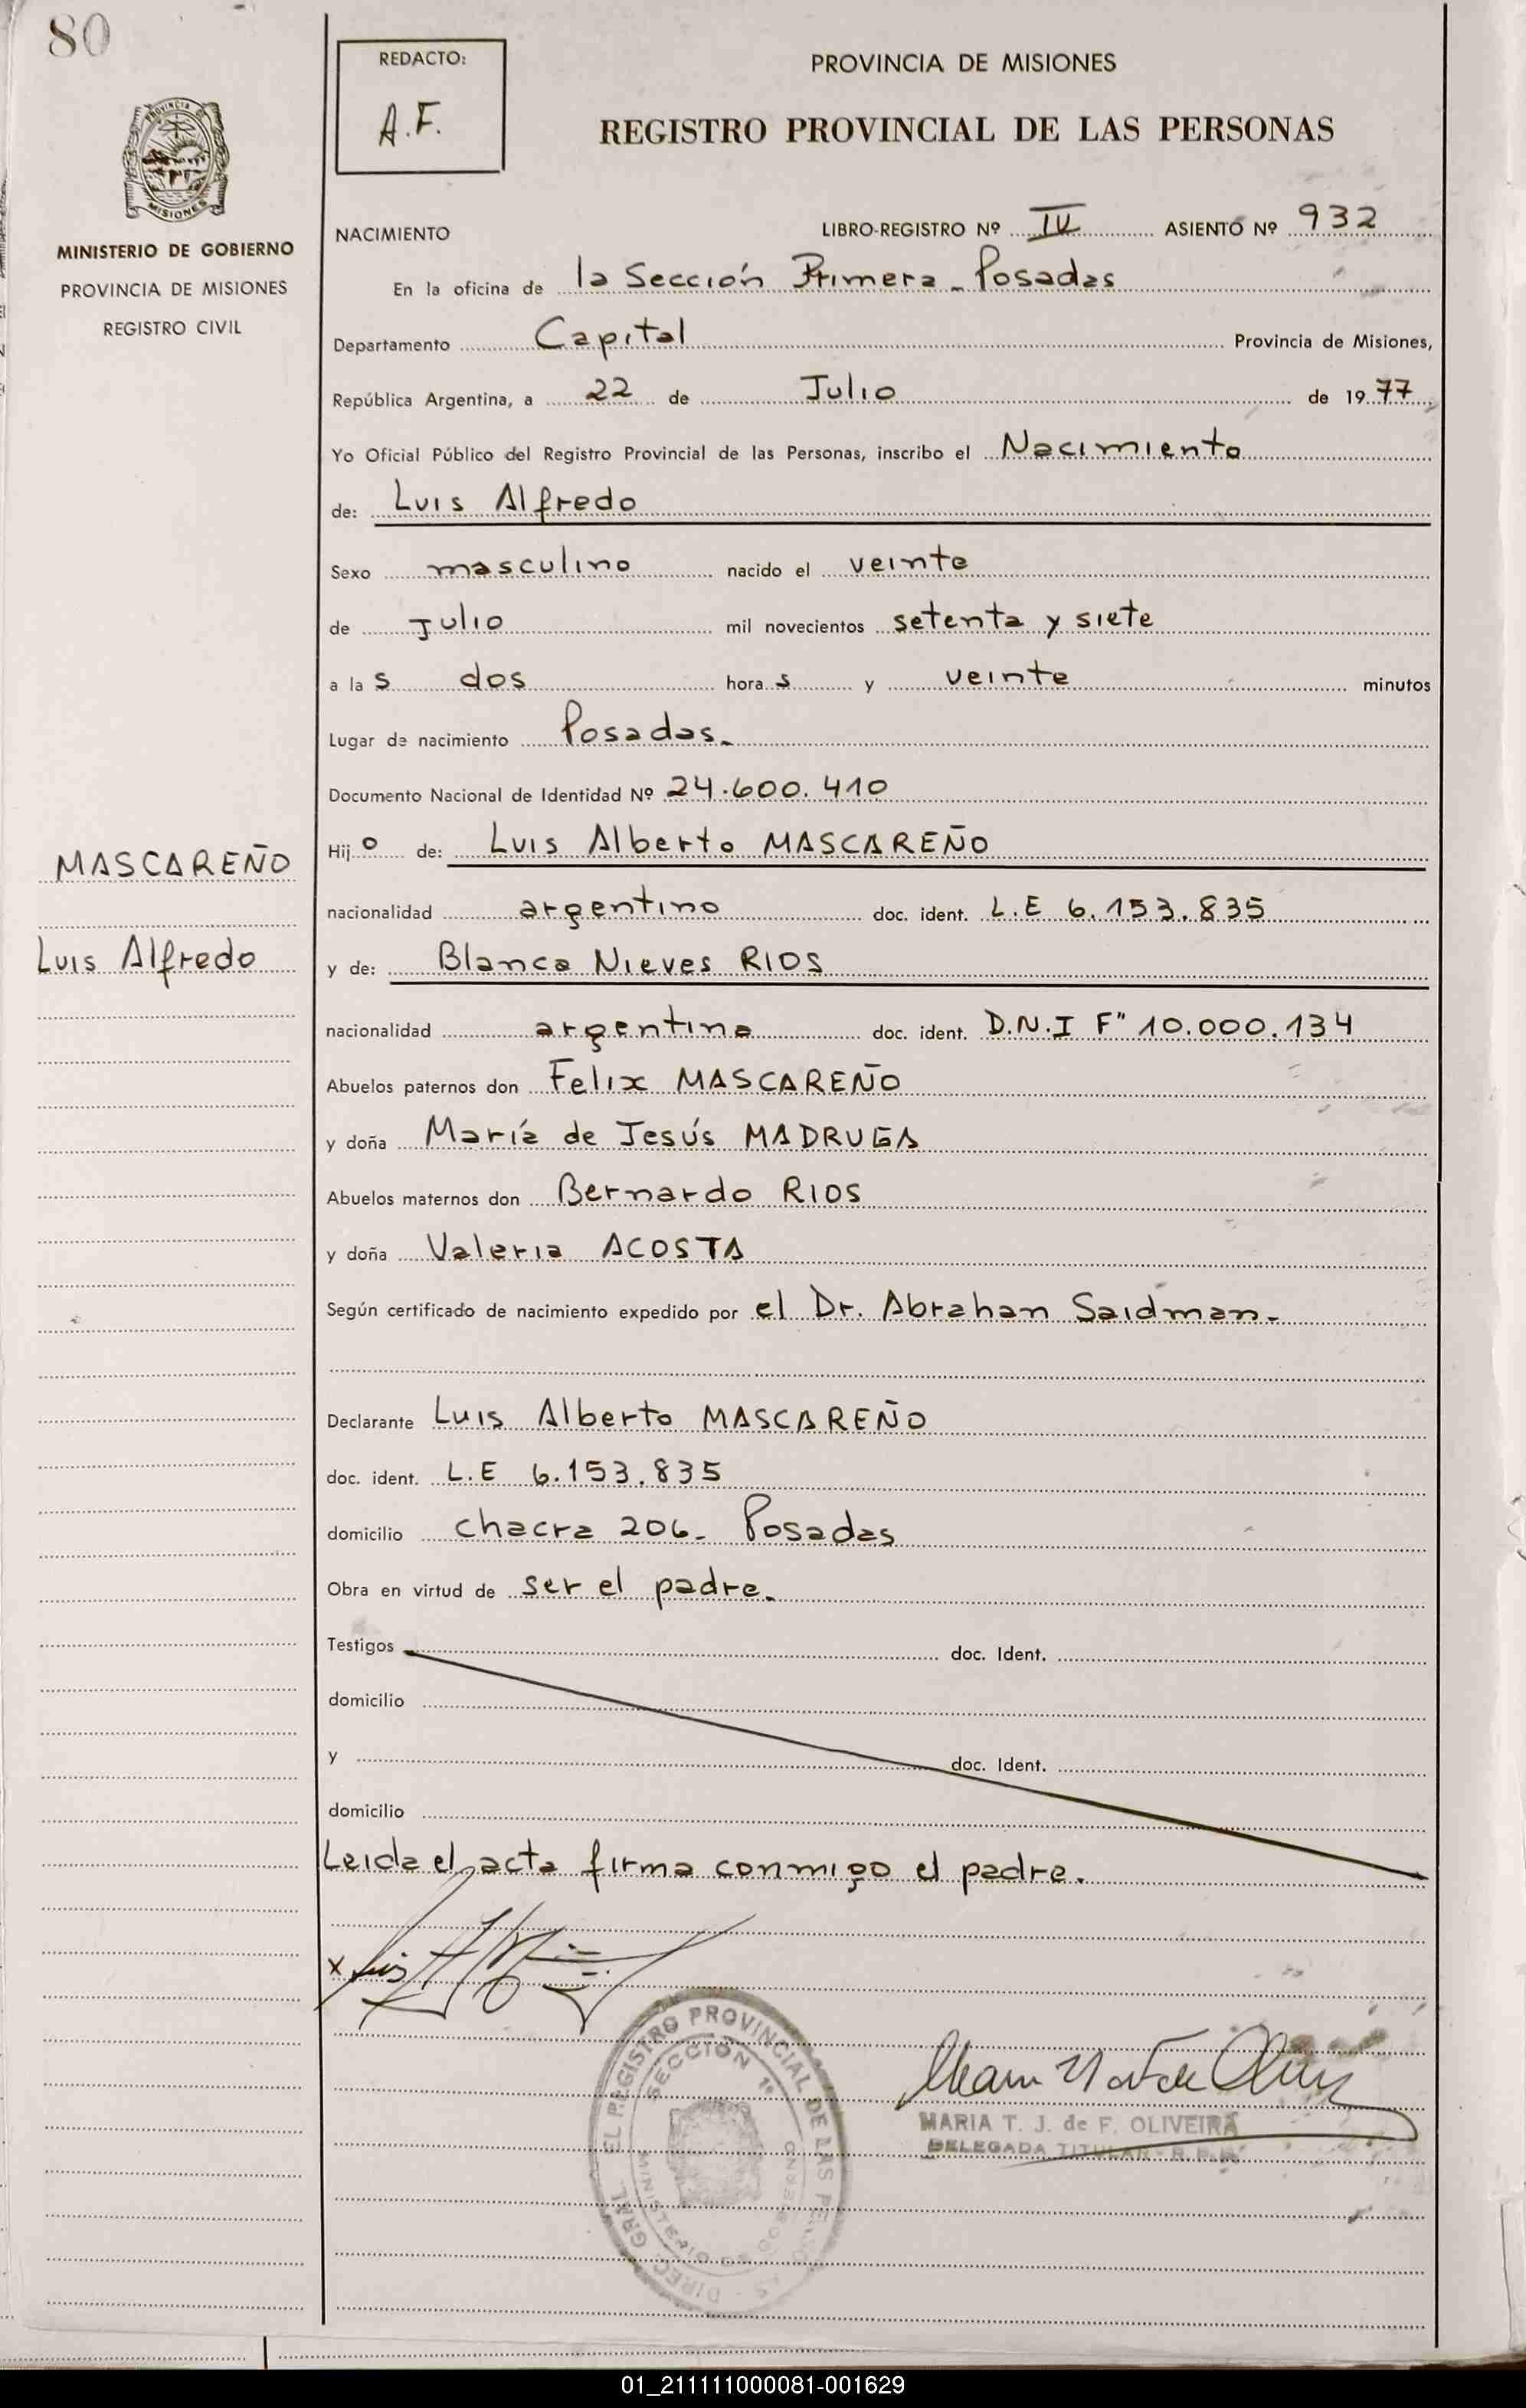 80
REDACTO:
A.F.
PROVINCIA DE MISIONES
REGISTRO PROVINCIAL DE LAS PERSONAS
PROVINCIA
MISIONES
MINISTERIO DE GOBIERNO
PROVINCIA DE MISIONES
REGISTRO CIVIL
NACIMIENTO LIBRO-REGISTRO Nº IV ASIENTO Nº 932
En la oficina de la Sección Primera - Posadas
Departamento Capital Provincia de Misiones,
República Argentina, a 22 de Julio de 1977
Yo Oficial Público del Registro Provincial de las Personas, inscribo el Nacimiento
de: Luis Alfredo
Sexo masculino nacido el veinte
de Julio mil novecientos setenta y siete
a la s dos hora s y veinte minutos
Lugar de nacimiento Posadas.-
Documento Nacional de Identidad Nº 24.600.410
MASCAREÑO
Luis Alfredo
Hij o de: Luis Alberto MASCAREÑO
nacionalidad argentino doc. ident. L.E 6.153.835
y de: Blanca Nieves RIOS
nacionalidad argentina doc. ident. D.N.I F" 10.000.134
Abuelos paternos don Felix MASCAREÑO
y doña María de Jesús MADRUGA
Abuelos maternos don Bernardo RIOS
y doña Valeria ACOSTA
Según certificado de nacimiento expedido por el Dr. Abrahan Saidman.-
Declarante Luis Alberto MASCAREÑO
doc. ident. L.E 6.153.835
domicilio chacra 206- Posadas
Obra en virtud de ser el padre.
Testigos doc. Ident.
domicilio
y doc. Ident.
domicilio
Leida el acta firma conmigo el padre.
x Luis
DIREC. GRAL. EL REGISTRO PROVINCIAL DE LAS PERSONAS
SECCION 1º
MINISTERIO DE GOBIERNO
MARIA T. J. de F. OLIVEIRA
DELEGADA TITULAR - R.P.P.
01_211111000081-001629